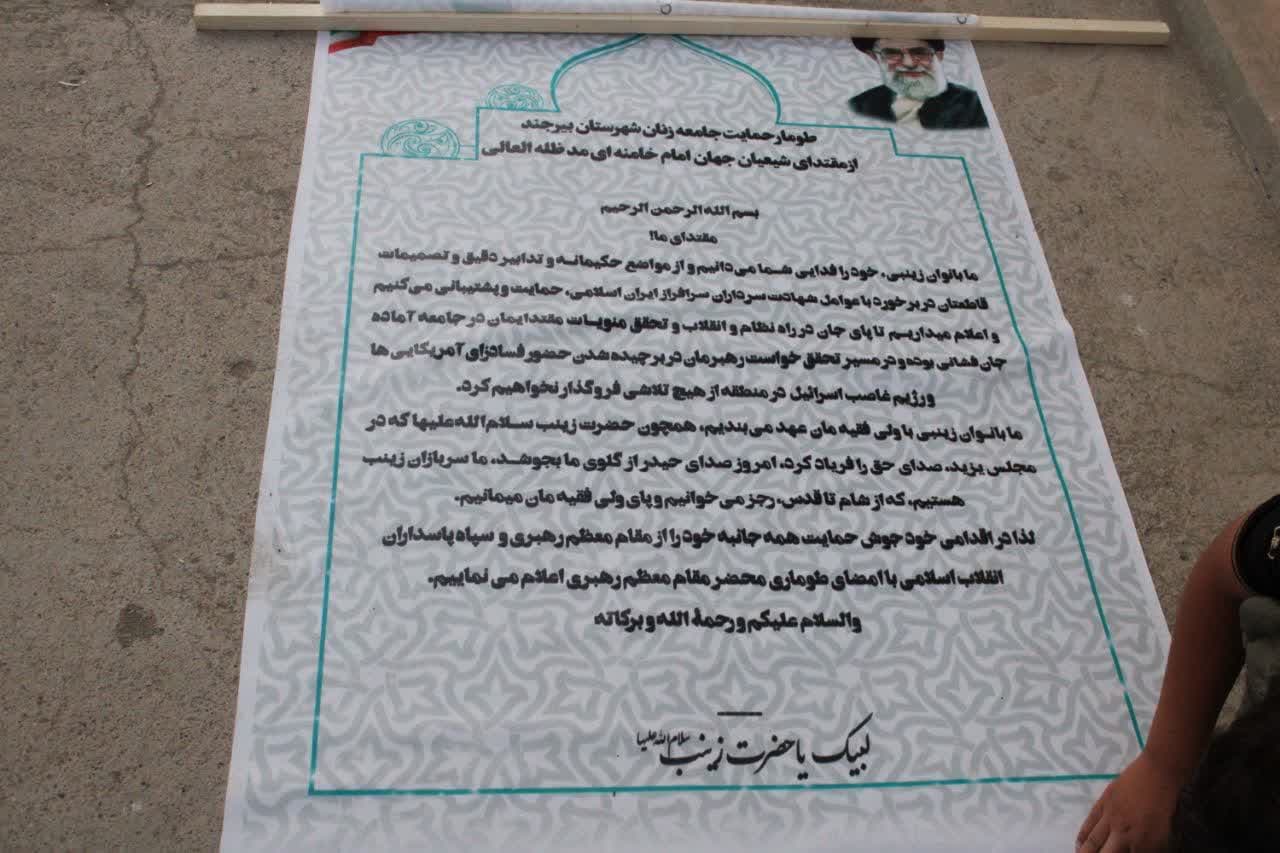 طومار حمایت جامعه زنان شهرستان بیرجند
از مقتدای شیعیان جهان امام خامنه ای مد ظله العالی
بسم الله الرحمن الرحیم
مقتدای ما!
ما بانوان زینبی، خود را فدایی شما می دانیم و از مواضع حکیمانه و تدابیر دقیق و تصمیمات
قاطعتان در برخورد با عوامل شهادت سرداران سرافراز ایران اسلامی، حمایت و پشتیبانی می‌کنیم
و اعلام میداریم تا پای جان در راه نظام و انقلاب و تحقق منویات مقتدایمان در جامعه آماده
جان فشانی بوده و در مسیر تحقق خواست رهبرمان در بر چیده شدن حضور فسادزای آمریکایی ها
و رژیم غاصب اسرائیل در منطقه از هیچ تلاشی فروگذار نخواهیم کرد.
ما بانوان زینبی با ولی فقیه مان عهد می بندیم، همچون حضرت زینب سلام الله علیها که در
مجلس یزید، صدای حق را فریاد کرد، امروز صدای حیدر از گلوی ما بجوشد، ما سربازان زینب
هستیم، که از شام تا قدس، رجز می خوانیم و پای ولی فقیه مان میمانیم.
لذا در اقدامی خود جوش حمایت همه جانبه خود را از مقام معظم رهبری و سپاه پاسداران
انقلاب اسلامی با امضای طوماری محضر مقام معظم رهبری اعلام می نماییم.
والسلام علیکم و رحمة الله و برکاته
لبیک یا حضرت زینب سلام الله علیها